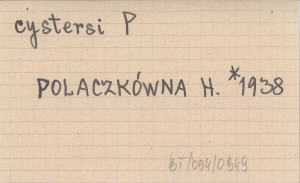 cystersi P
POLACZKÓWNA H. *1938
BT/094/0949